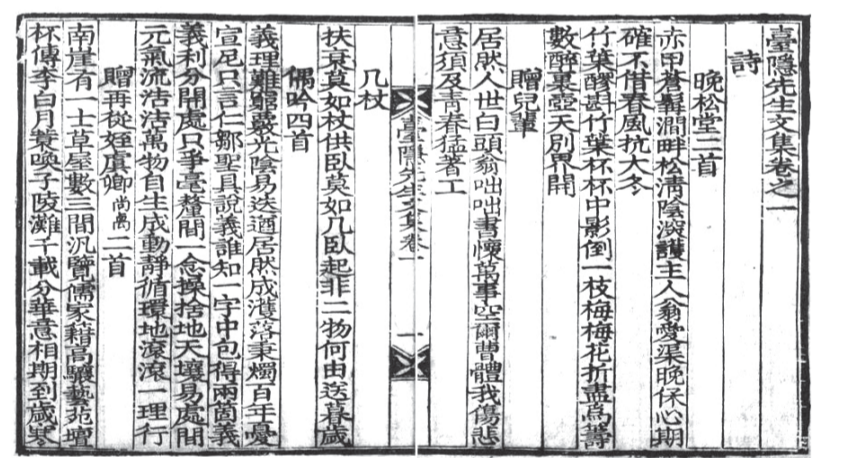 臺隱先生文集卷之一
詩
晚松堂二首
赤甲蒼鞱澗畔松淸陰深護主人翁愛渠晚保心期
確不借春風抗大冬
竹葉醪斟竹葉杯杯中影倒一枝梅梅花折盡爲籌
數醉裏壺天別界開
贈兒輩
居然人世白頭翁咄咄書懷萬事空爾曹體我傷悲
意須及靑春猛著工
臺隱先生文集卷一
一
几杖
扶衰莫如杖供臥莫如几臥起非二物何由送暮歲
偶吟四首
義理難窮覈光陰易迭遒居然成濩落秉燭百年憂
宣尼只言仁鄒聖具說義誰知一字中包得兩箇義
義利分開處只爭毫釐間一念操捨地天壤易處間
元氣流浩浩萬物自生成動靜循環地滾滾一理行
贈再從姪虞卿尙禼二首
南崖有一士草屋數三間沉覽儒家籍高驤藝苑壇
杯傳李白月蓑喚子陵灘千載分華意相期到歲寒